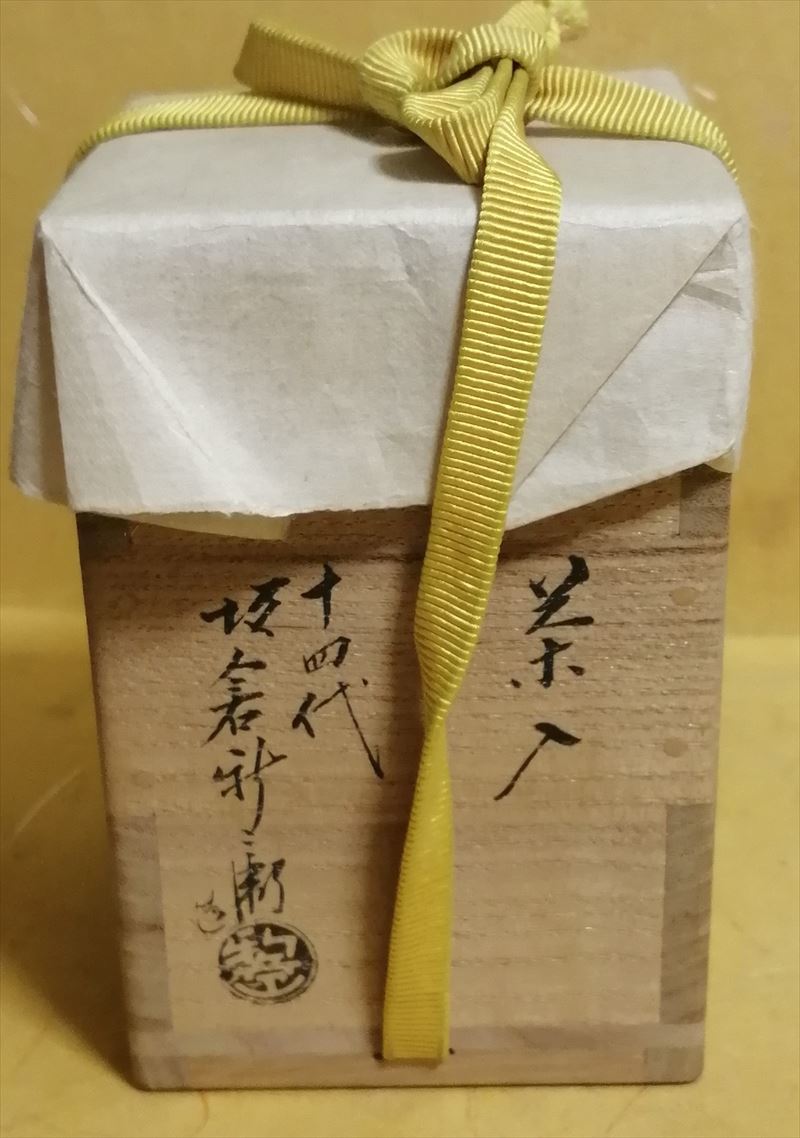 茶入
十四代
坂倉新兵衛
造